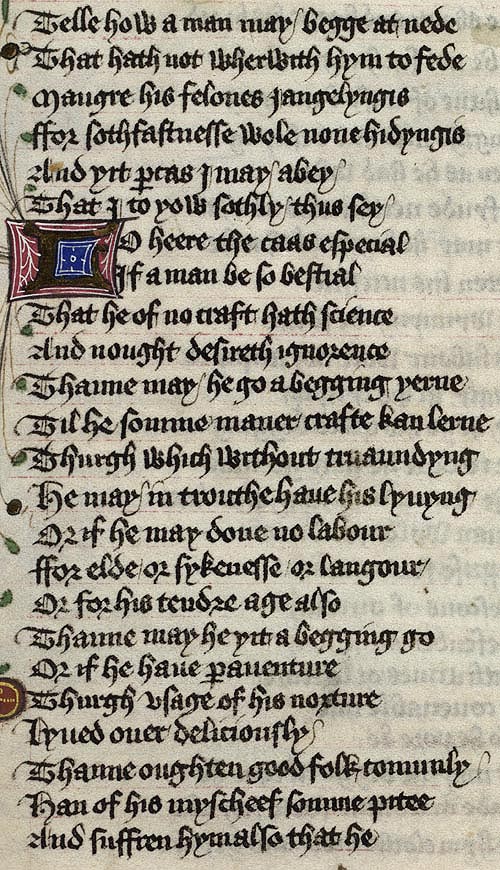 Telle how a man may begge at nede
That hath not wherwith hym to fede
Maugre his felones jangelyngis
ffor sothfastnesse wole none hidyngis
And yit ꝑcas I may abey
That I to yow sothly thus sey
O heere the caas especial
If a man be so bestial
That he of no craft hath science
And nought desireth ignorence
Thanne may he go a begging yerne
Til he somme maner crafte kan lerne
Thurgh which without truaundyng
He may in trouthe haue his lyuyng
Or if he may done no labour
ffor elde or sykenesse or langour
Or for his tendre age also
Thanne may he yit a begging go
Or if he haue ꝑauenture
Thurgh vsage of his norture
Lyued ouer deliciously
Thanne oughten good folk comunly
Han of his myscheef somme pitee
And suffren hym also that he